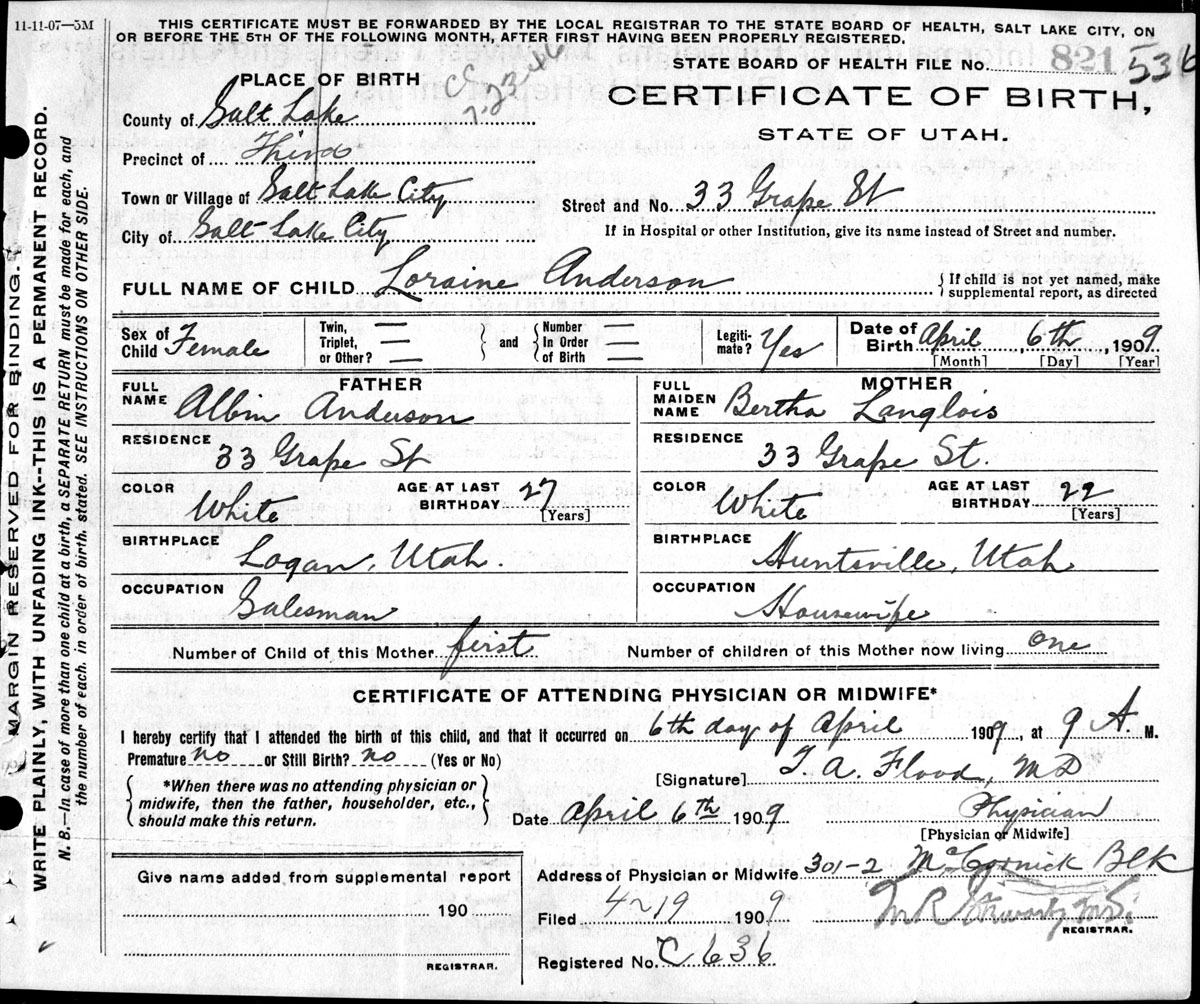 11-11-07—5M
THIS CERTIFICATE MUST BE FORWARDED BY THE LOCAL REGISTRAR TO THE STATE BOARD OF HEALTH, SALT LAKE CITY, ON
OR BEFORE THE 5TH OF THE FOLLOWING MONTH, AFTER FIRST HAVING BEEN PROPERLY REGISTERED.
STATE BOARD OF HEALTH FILE No. 821 536
PLACE OF BIRTH
CERTIFICATE OF BIRTH,
STATE OF UTAH.
County of Salt Lake
Precinct of Third
Town or Village of Salt Lake City
Street and No. 33 Grape St
City of Salt Lake City
If in Hospital or other Institution, give its name instead of Street and number.
FULL NAME OF CHILD Loraine Anderson
{If child is not yet named, make
supplemental report, as directed
Sex of
Child Female
Twin, —
Triplet, —
or Other? —
and
Number —
In Order
of Birth —
Legiti-
mate? Yes
Date of
Birth April, 6th, 1909
[Month] [Day] [Year]
FATHER
FULL
NAME Albin Anderson
RESIDENCE
33 Grape St
COLOR White
AGE AT LAST
BIRTHDAY 27
[Years]
BIRTHPLACE
Logan, Utah.
OCCUPATION
Salesman
MOTHER
FULL
MAIDEN
NAME Bertha Langlois
RESIDENCE
33 Grape St.
COLOR White
AGE AT LAST
BIRTHDAY 22
[Years]
BIRTHPLACE
Huntsville, Utah
OCCUPATION
Housewife
Number of Child of this Mother first Number of children of this Mother now living one
CERTIFICATE OF ATTENDING PHYSICIAN OR MIDWIFE*
I hereby certify that I attended the birth of this child, and that it occurred on 6th day of April 1909, at 9 A. M.
Premature no or Still Birth? no (Yes or No)
[Signature] T. A. Flood, MD
*When there was no attending physician or
midwife, then the father, householder, etc.,
should make this return.
Date April 6th 1909
Physician
[Physician or Midwife]
Give name added from supplemental report
190
REGISTRAR.
Address of Physician or Midwife 301-2 McCornick Blk
Filed 4-19 1909
REGISTRAR.
Registered No. C 636
MARGIN RESERVED FOR BINDING.
WRITE PLAINLY, WITH UNFADING INK--THIS IS A PERMANENT RECORD.
N. B.—In case of more than one child at a birth, a SEPARATE RETURN must be made for each, and
the number of each, in order of birth, stated. SEE INSTRUCTIONS ON OTHER SIDE.